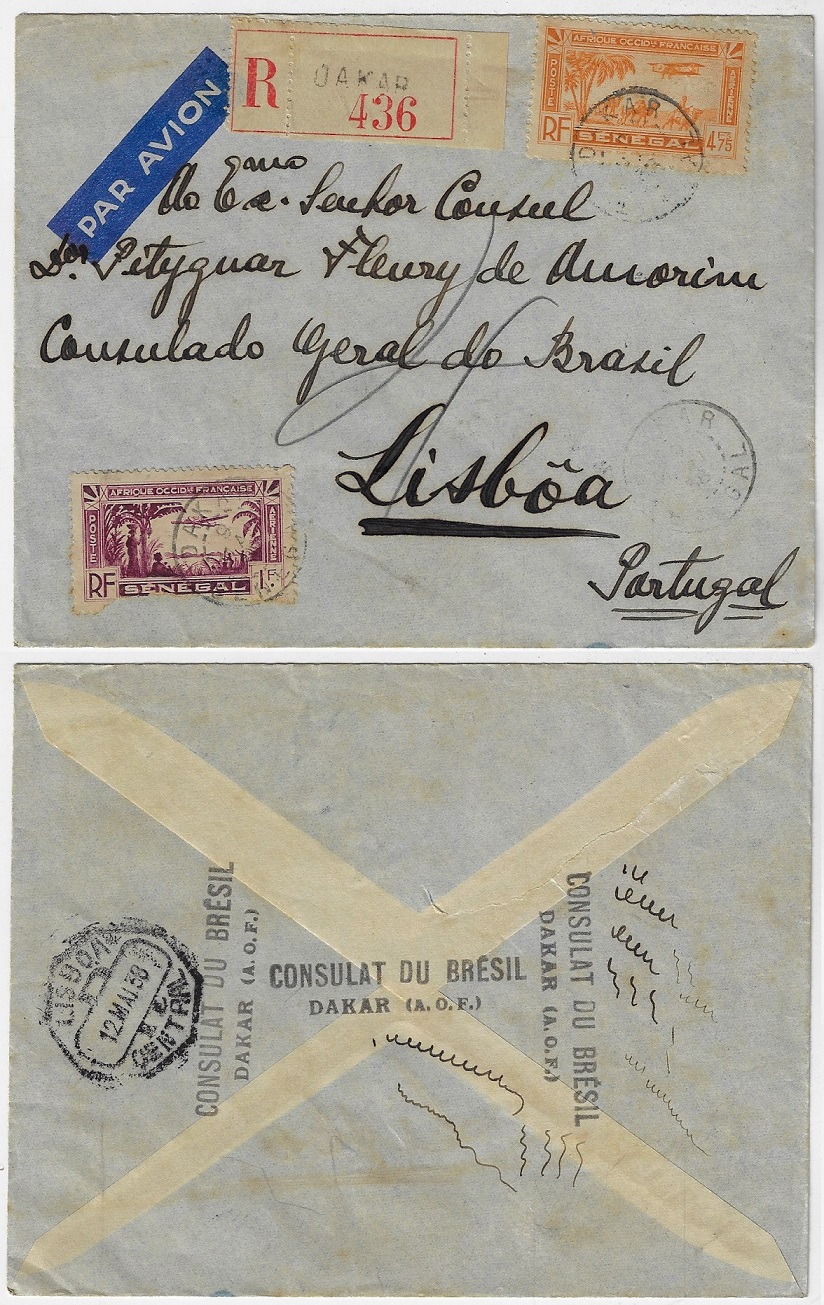 PAR AVION
R DAKAR
436
AFRIQUE OCCIDle FRANÇAISE
POSTE AÉRIENNE
RF SENEGAL 4F75
Ao Exmo. Senhor Consul
Dr. Pityguar Fleury de Amorim
Consulado Geral do Brasil
Lisbôa
Portugal
AFRIQUE OCCIDle FRANÇAISE
POSTE AÉRIENNE
RF SENEGAL 1F.
DAKAR
LISBOA
12.MAI.38
CENTRAL
CONSULAT DU BRÉSIL
DAKAR (A.O.F.)
CONSULAT DU BRÉSIL
DAKAR (A.O.F.)
CONSULAT DU BRÉSIL
DAKAR (A.O.F.)